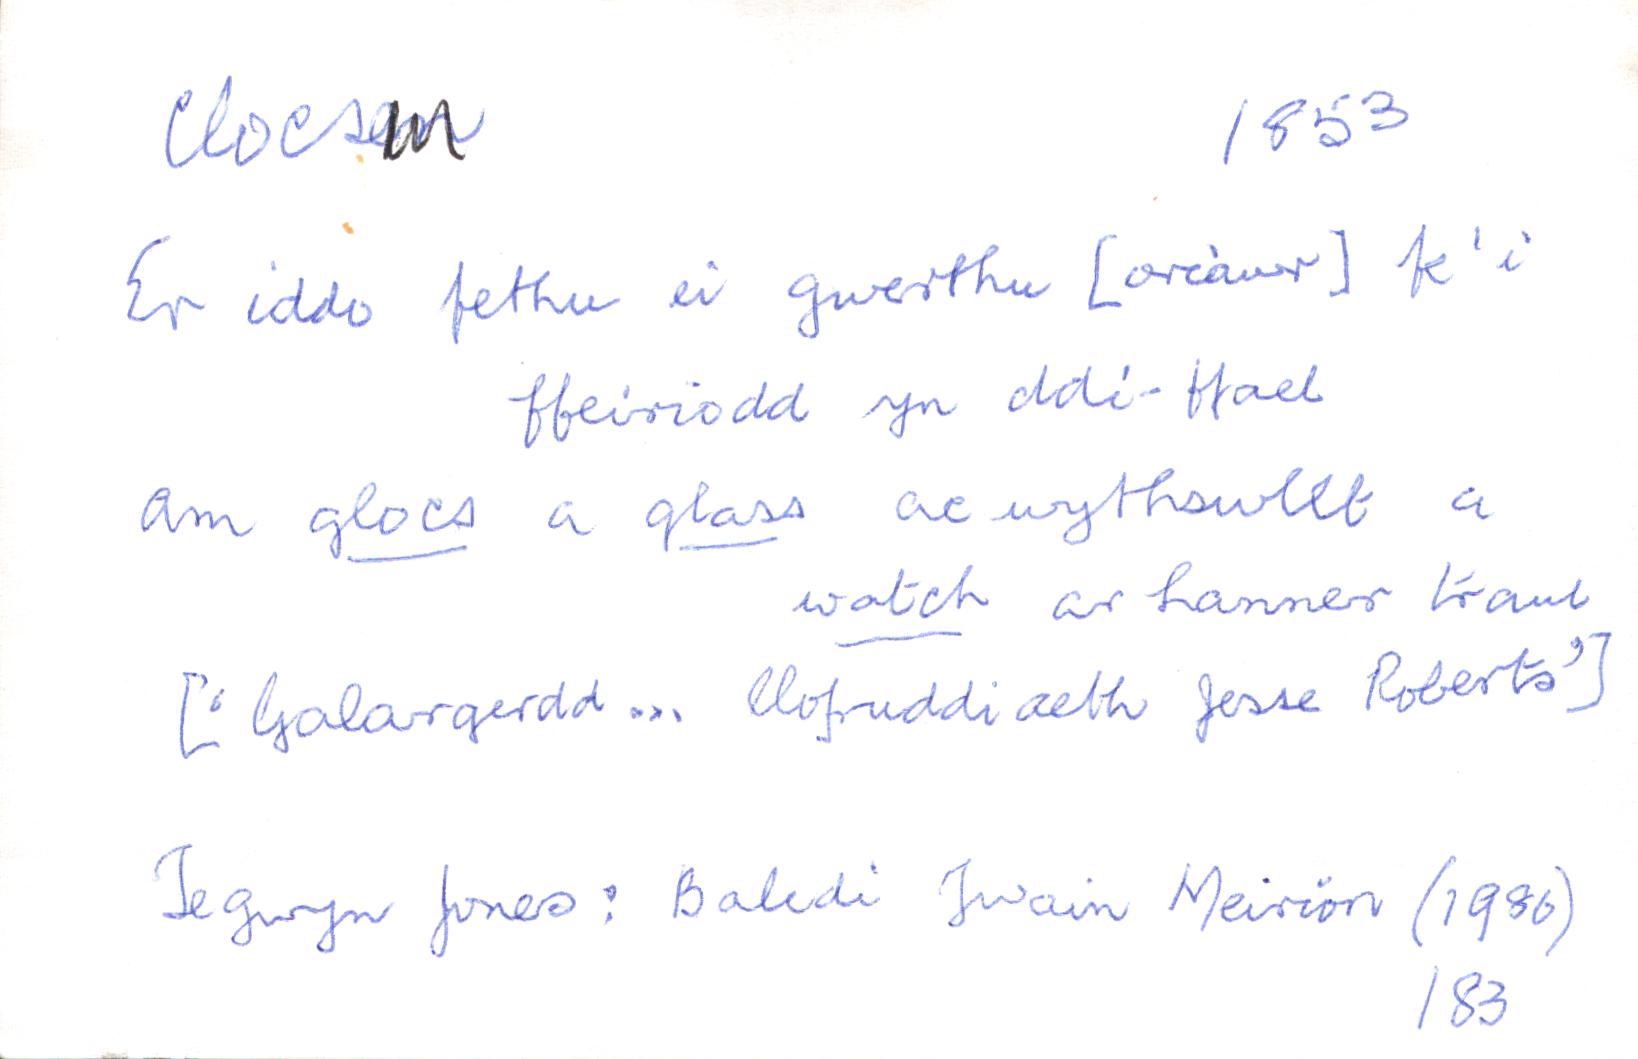 clocsen 1853
Er iddo fethu ei gwerthu [oriawr] fe'i
ffeiriodd yn ddi-ffael
am glocs a glass ac wythswllt a
watch ar hanner traul
['Galargerdd... Llofruddiaeth Jesse Roberts']
Tegwyn Jones: Baledi Ywain Meirion (1980)
183